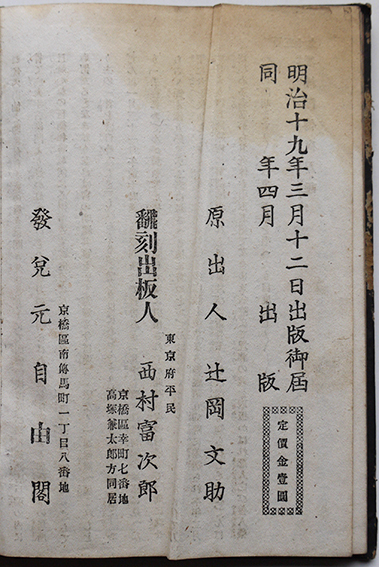 明治十九年三月十二日出版御届
同年四月出版
定價金壹圓
原出人 辻岡文助
東京府平民
翻刻出板人 西村富次郎
京橋區幸町七番地
高塚兼太郎方同居
京橋區南傳馬町一丁目八番地
發兌元 自由閣